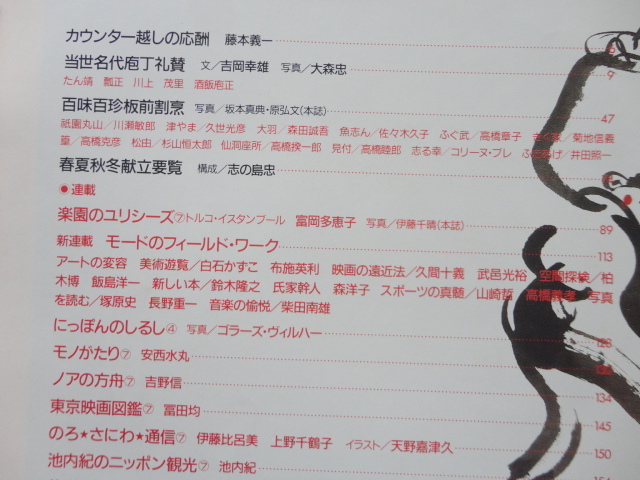 カウンター越しの応酬 藤本義一 6
当世名代庖丁礼賛 文／吉岡幸雄 写真／大森忠 9
たん熊 瓢正 川上 茂里 酒飯庖正
百味百珍板前割烹 写真／坂本真典・原弘文（本誌） 47
祇園丸山／川瀬敏郎 津やま／久世光彦 大羽／森田誠吾 魚志ん／佐々木久子 ふぐ武／高橋章子 ／菊地信義
葷／高橋克彦 松由／杉山恒太郎 仙洞座所／高橋揆一郎 見付／高橋睦郎 志る幸／コリーヌ・ブレ ／井田照一
春夏秋冬献立要覧 構成／志の島忠
●連載
楽園のユリシーズ⑦トルコ・イスタンブール 富岡多恵子 写真／伊藤千晴（本誌） 89
新連載 モードのフィールド・ワーク 113
アートの変容 美術遊覧／白石かずこ 布施英利 映画の遠近法／久間十義 武邑光裕 空間探検／柏
木博 飯島洋一 新しい本／鈴木隆之 氏家幹人 森洋子 スポーツの真髄／山崎哲 高橋義孝 写真
を読む／塚原史 長野重一 音楽の愉悦／柴田南雄
にっぽんのしるし④ 写真／ゴラーズ・ヴィルハー 123
モノがたり⑦ 安西水丸
ノアの方舟⑦ 吉野信 134
東京映画図鑑⑦ 冨田均 145
のろ★さにわ★通信⑦ 伊藤比呂美 上野千鶴子 イラスト／天野嘉津久 150
池内紀のニッポン観光⑦ 池内紀